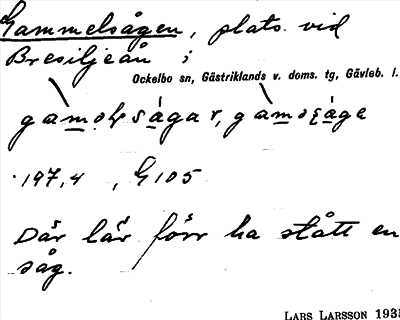 Gammelsågen, plats vid
Bresiljeån ;
Ockelbo sn, Gästriklands v. doms. tg, Gävleb. l.
197,4 , G105
Där lär förr ha stått en
såg.
LARS LARSSON 193